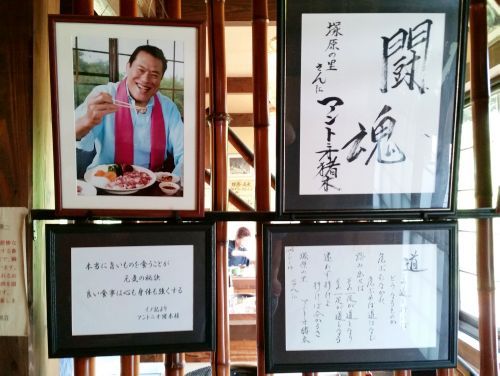 闘魂
塚原の里
さんに
アントニオ猪木
本当に旨いものを食うことが
元気の秘訣
良い食事は心も身体も強くする
アントニオ猪木
道
この道を行けば
どうなるものか
危ぶむなかれ
危ぶめば道はなし
踏み出せば
その一足が道となり
その一足が道となる
迷わず行けよ
行けばわかるさ
塚原の里
さんに
アントニオ猪木